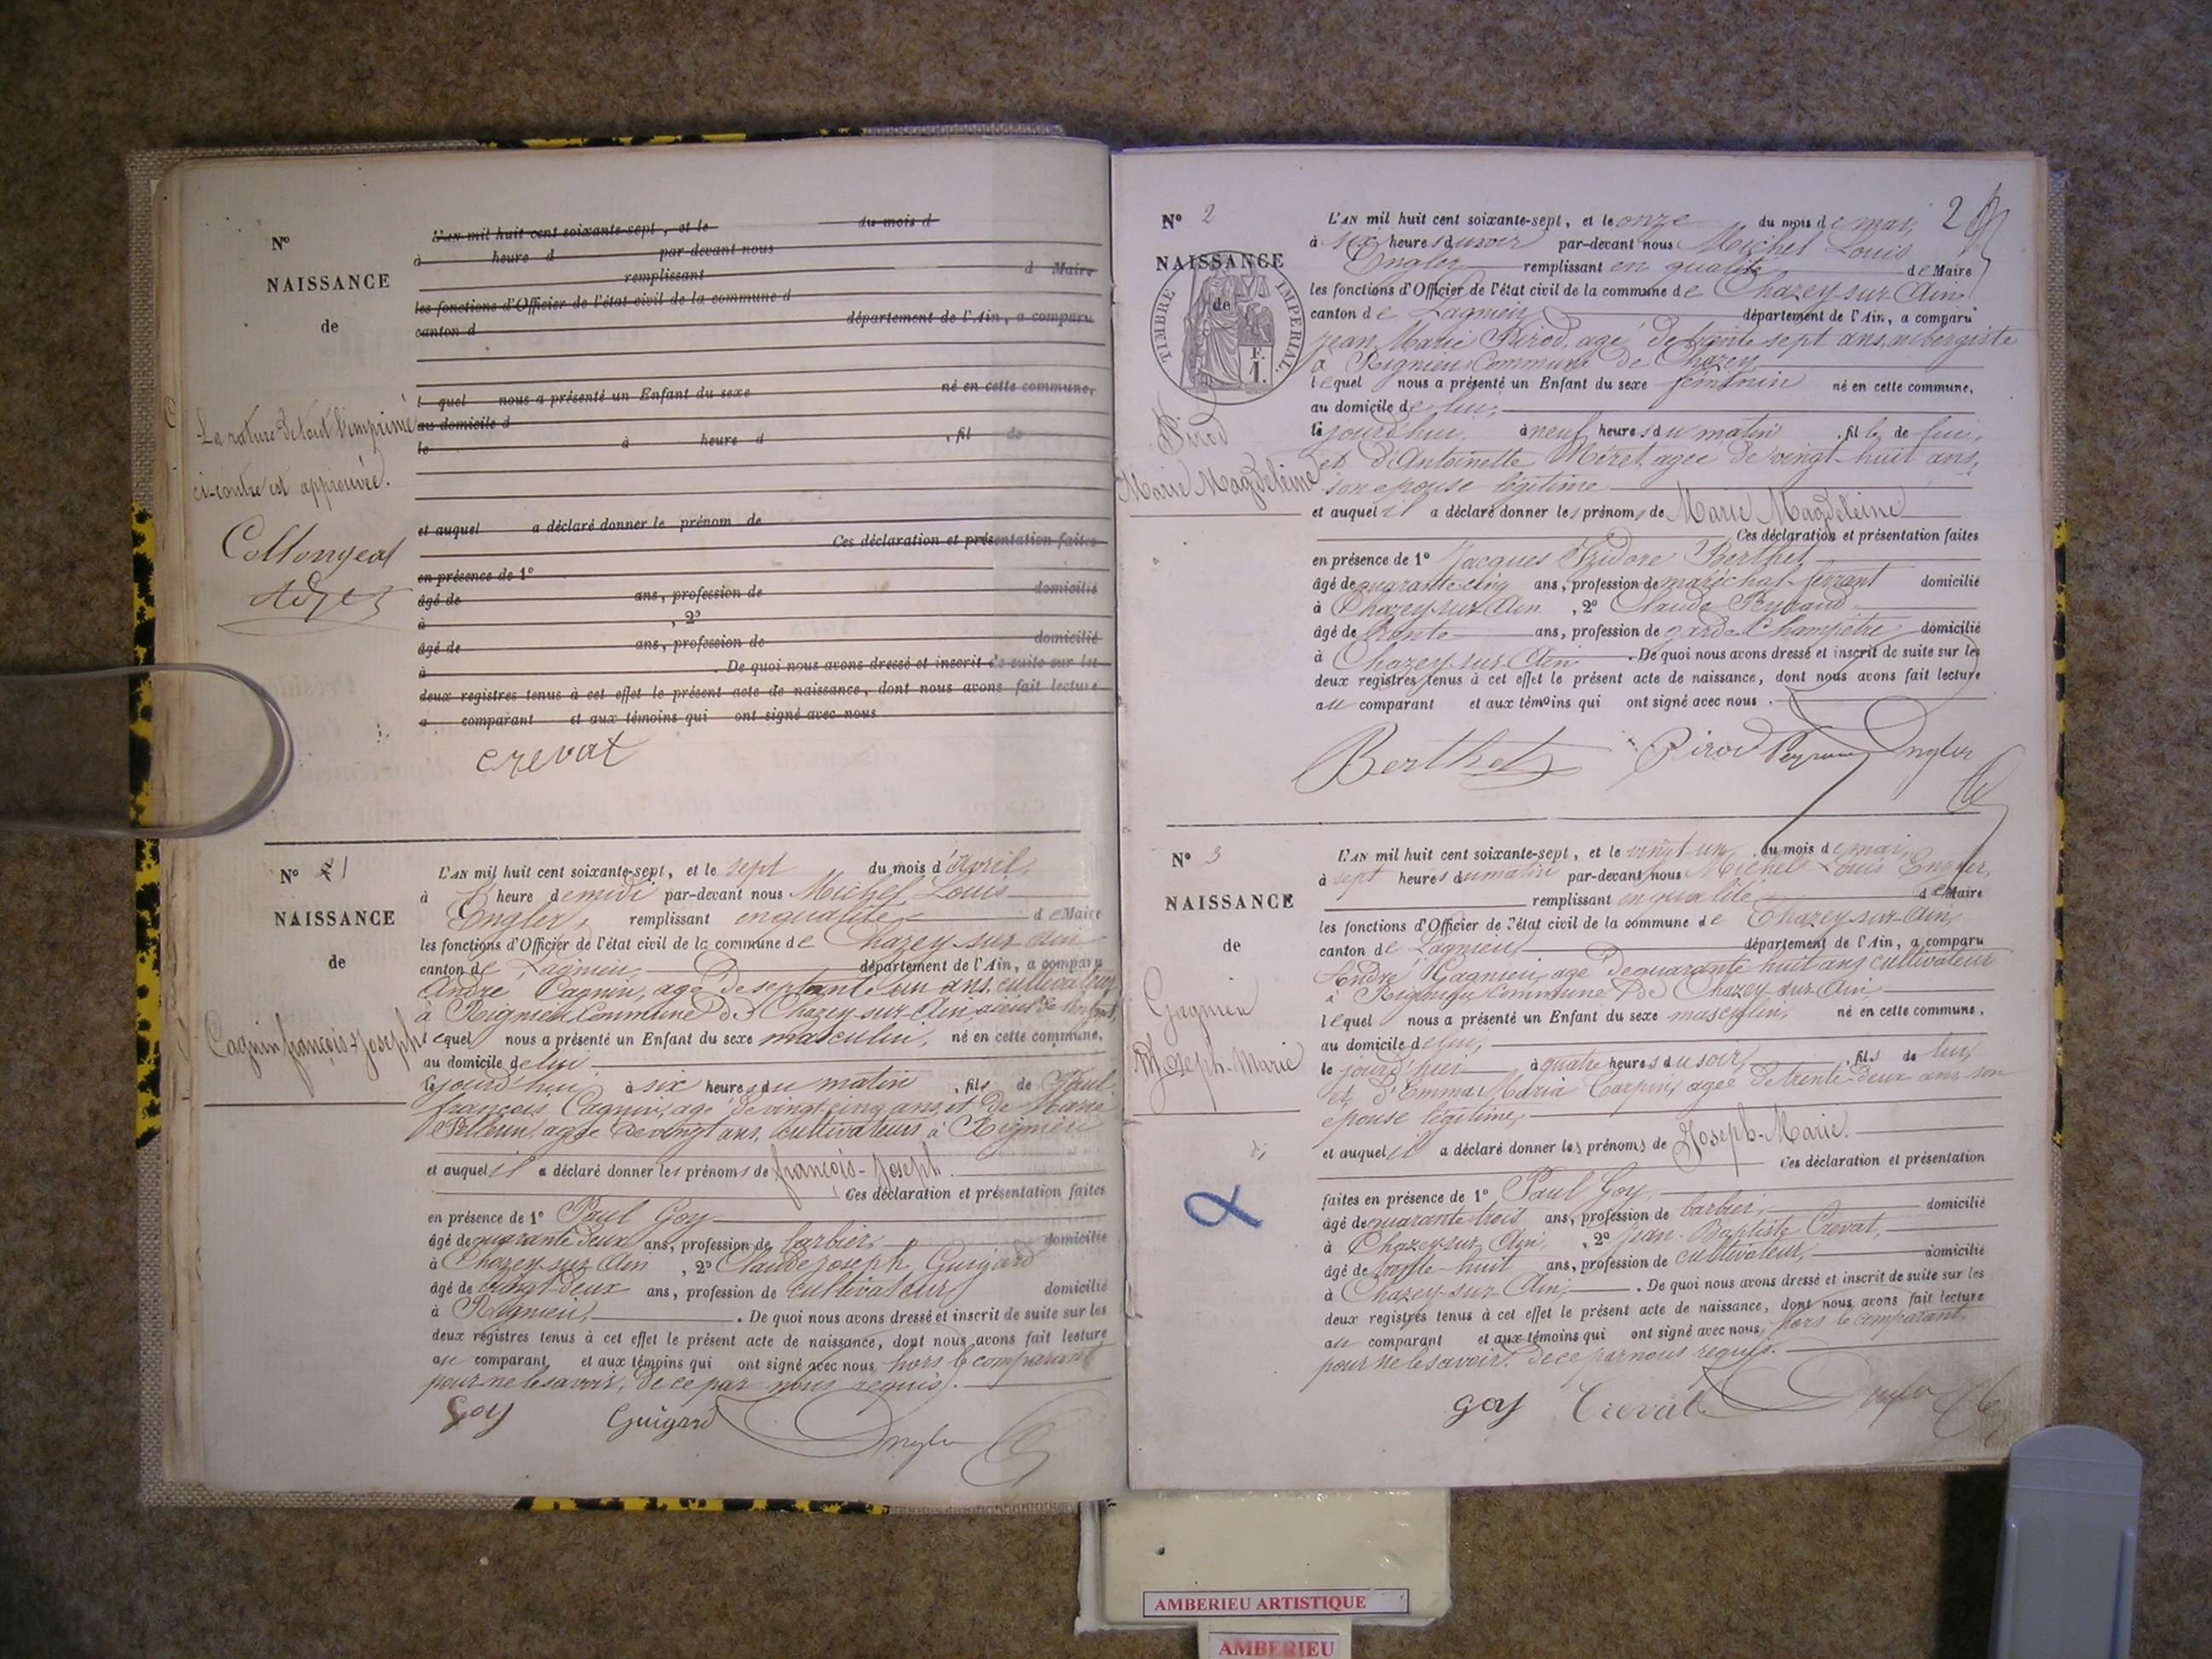 N°
NAISSANCE
de
L'AN mil huit cent soixante-sept, et le du mois d
à heure d par-devant nous
remplissant d Maire
les fonctions d'Officier de l'état civil de la commune d
canton d département de l'Ain, a comparu
l quel nous a présenté un Enfant du sexe né en cette commune,
au domicile d
le à heure d , fil de
et auquel a déclaré donner le prénom de
Ces déclaration et présentation faites
en présence de 1°
âgé de ans, profession de domicilié
à , 2°
âgé de ans, profession de domicilié
à . De quoi nous avons dressé et inscrit de suite sur les
deux registres tenus à cet effet le présent acte de naissance, dont nous avons fait lecture
a comparant et aux témoins qui ont signé avec nous
La rature de tout l'imprimé
ci-contre est approuvée.
Collongeat
Crevat
N° 1
NAISSANCE
de
Cagnin françois-Joseph
L'AN mil huit cent soixante-sept, et le sept du mois d'avril,
à heure de midi par-devant nous Michel Louis
Engler, remplissant en qualité de Maire
les fonctions d'Officier de l'état civil de la commune de Chazey-sur-Ain
canton de Lagnieu, département de l'Ain, a comparu
André Cagnin, agé de septante un ans, cultivateur
à Rignieu Commune de Chazey-sur-Ain aieul de l'enfant,
lequel nous a présenté un Enfant du sexe masculin, né en cette commune,
au domicile de lui
jourd'hui à six heures du matin , fils de Paul
françois Cagnin, agé de vingt-cinq ans, et de Marie
agée de vingt ans, cultivateurs à Rignieu
et auquel il a déclaré donner les prénoms de françois-Joseph
Ces déclaration et présentation faites
en présence de 1° Paul Goy
âgé de quarante deux ans, profession de barbier, domicilié
à Chazey-sur-Ain , 2° Claude Joseph Guigard
âgé de vingt-deux ans, profession de cultivateur domicilié
à Rignieu, . De quoi nous avons dressé et inscrit de suite sur les
deux registres tenus à cet effet le présent acte de naissance, dont nous avons fait lecture
au comparant et aux témoins qui ont signé avec nous, hors le comparant
pour ne le savoir, de ce par nous requis.
Goy Guigard Engler
N° 2
NAISSANCE
de
TIMBRE IMPERIAL
Pirod
Marie Magdeleine
2
L'AN mil huit cent soixante-sept, et le onze du mois de mai,
à six heures du soir par-devant nous Michel Louis
Engler remplissant en qualité de Maire
les fonctions d'Officier de l'état civil de la commune de Chazey-sur-Ain
canton de Lagnieu département de l'Ain, a comparu
Jean Marie Pirod, agé de trente sept ans, aubergiste
à Rignieu Commune de Chazey
lequel nous a présenté un Enfant du sexe féminin né en cette commune,
au domicile de lui,
jourd'hui, à neuf heures du matin , fille de lui,
et d'Antoinette Méret agée de vingt-huit ans,
son epouse légitime
et auquel il a déclaré donner les prénoms de Marie Magdeleine
Ces déclaration et présentation faites
en présence de 1° Jacques Izidore Berthet
âgé de quarante cinq ans, profession de maréchal-ferrant domicilié
à Chazey-sur-Ain , 2° Claude
âgé de trente ans, profession de garde Champêtre domicilié
à Chazey-sur-Ain . De quoi nous avons dressé et inscrit de suite sur les
deux registres tenus à cet effet le présent acte de naissance, dont nous avons fait lecture
au comparant et aux témoins qui ont signé avec nous .
Berthet Pirod Engler
N° 3
NAISSANCE
de
Gagnieu
Joseph-Marie
L'AN mil huit cent soixante-sept, et le vingt-un du mois de mai,
à sept heures du matin par-devant nous Michel Louis Engler,
remplissant en qualité de Maire
les fonctions d'Officier de l'état civil de la commune de Chazey-sur-Ain,
canton de Lagnieu département de l'Ain, a comparu
André Gagnieu, agé de quarante huit ans cultivateur
à Commune de Chazey-sur-Ain
lequel nous a présenté un Enfant du sexe masculin, né en cette commune,
au domicile de lui,
le jour d'hier à quatre heures du soir, , fils de lui,
et d'Emma Maria Carpin, agée de trente-deux ans, son
épouse légitime,
et auquel il a déclaré donner les prénoms de Joseph-Marie.
Ces déclaration et présentation
faites en présence de 1° Paul Goy,
âgé de quarante-trois ans, profession de barbier, domicilié
à Chazey-sur-Ain, , 2° Jean-Baptiste Crevat,
âgé de trente-huit ans, profession de cultivateur, domicilié
à Chazey-sur-Ain, . De quoi nous avons dressé et inscrit de suite sur les
deux registres tenus à cet effet le présent acte de naissance, dont nous avons fait lecture
au comparant et aux témoins qui ont signé avec nous, hors le comparant,
pour ne le savoir, de ce par nous requis.
goy Crevat Engler
AMBERIEU ARTISTIQUE
AMBERIEU